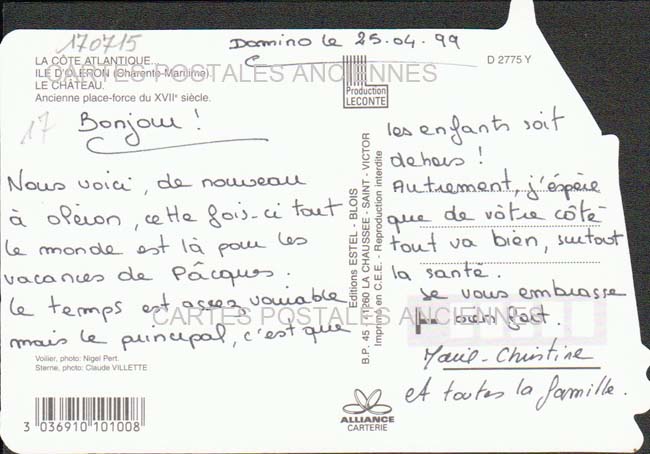 170715
Domino le 25.04.99
LA CÔTE ATLANTIQUE...
ILE D'OLÉRON (Charente-Maritime).
LE CHÂTEAU.
Ancienne place-force du XVIIe siècle.
D 2775 Y
CARTES POSTALES ANCIENNES
Production
LECONTE
17
Bonjour !
Nous voici, de nouveau
à oléron, cette fois-ci tout
le monde est là pour les
vacances de Pâcques.
le temps est assez variable
mais le principal, c'est que
Voilier, photo: Nigel Pert.
Sterne, photo: Claude VILLETTE
3 036910 101008
Editions ESTEL - BLOIS
B.P. 45 - 41260 LA CHAUSSEE - SAINT - VICTOR
Imprimé en C.E.E. - Reproduction interdite
les enfants soit
dehors !
Autrement, j'éspère
que de vôtre côté
tout va bien, surtout
la santé.
Je vous embrasse
bien fort.
CARTES POSTALES ANCIENNES
Marie-Christine
et toutes la famille.
ALLIANCE
CARTERIE